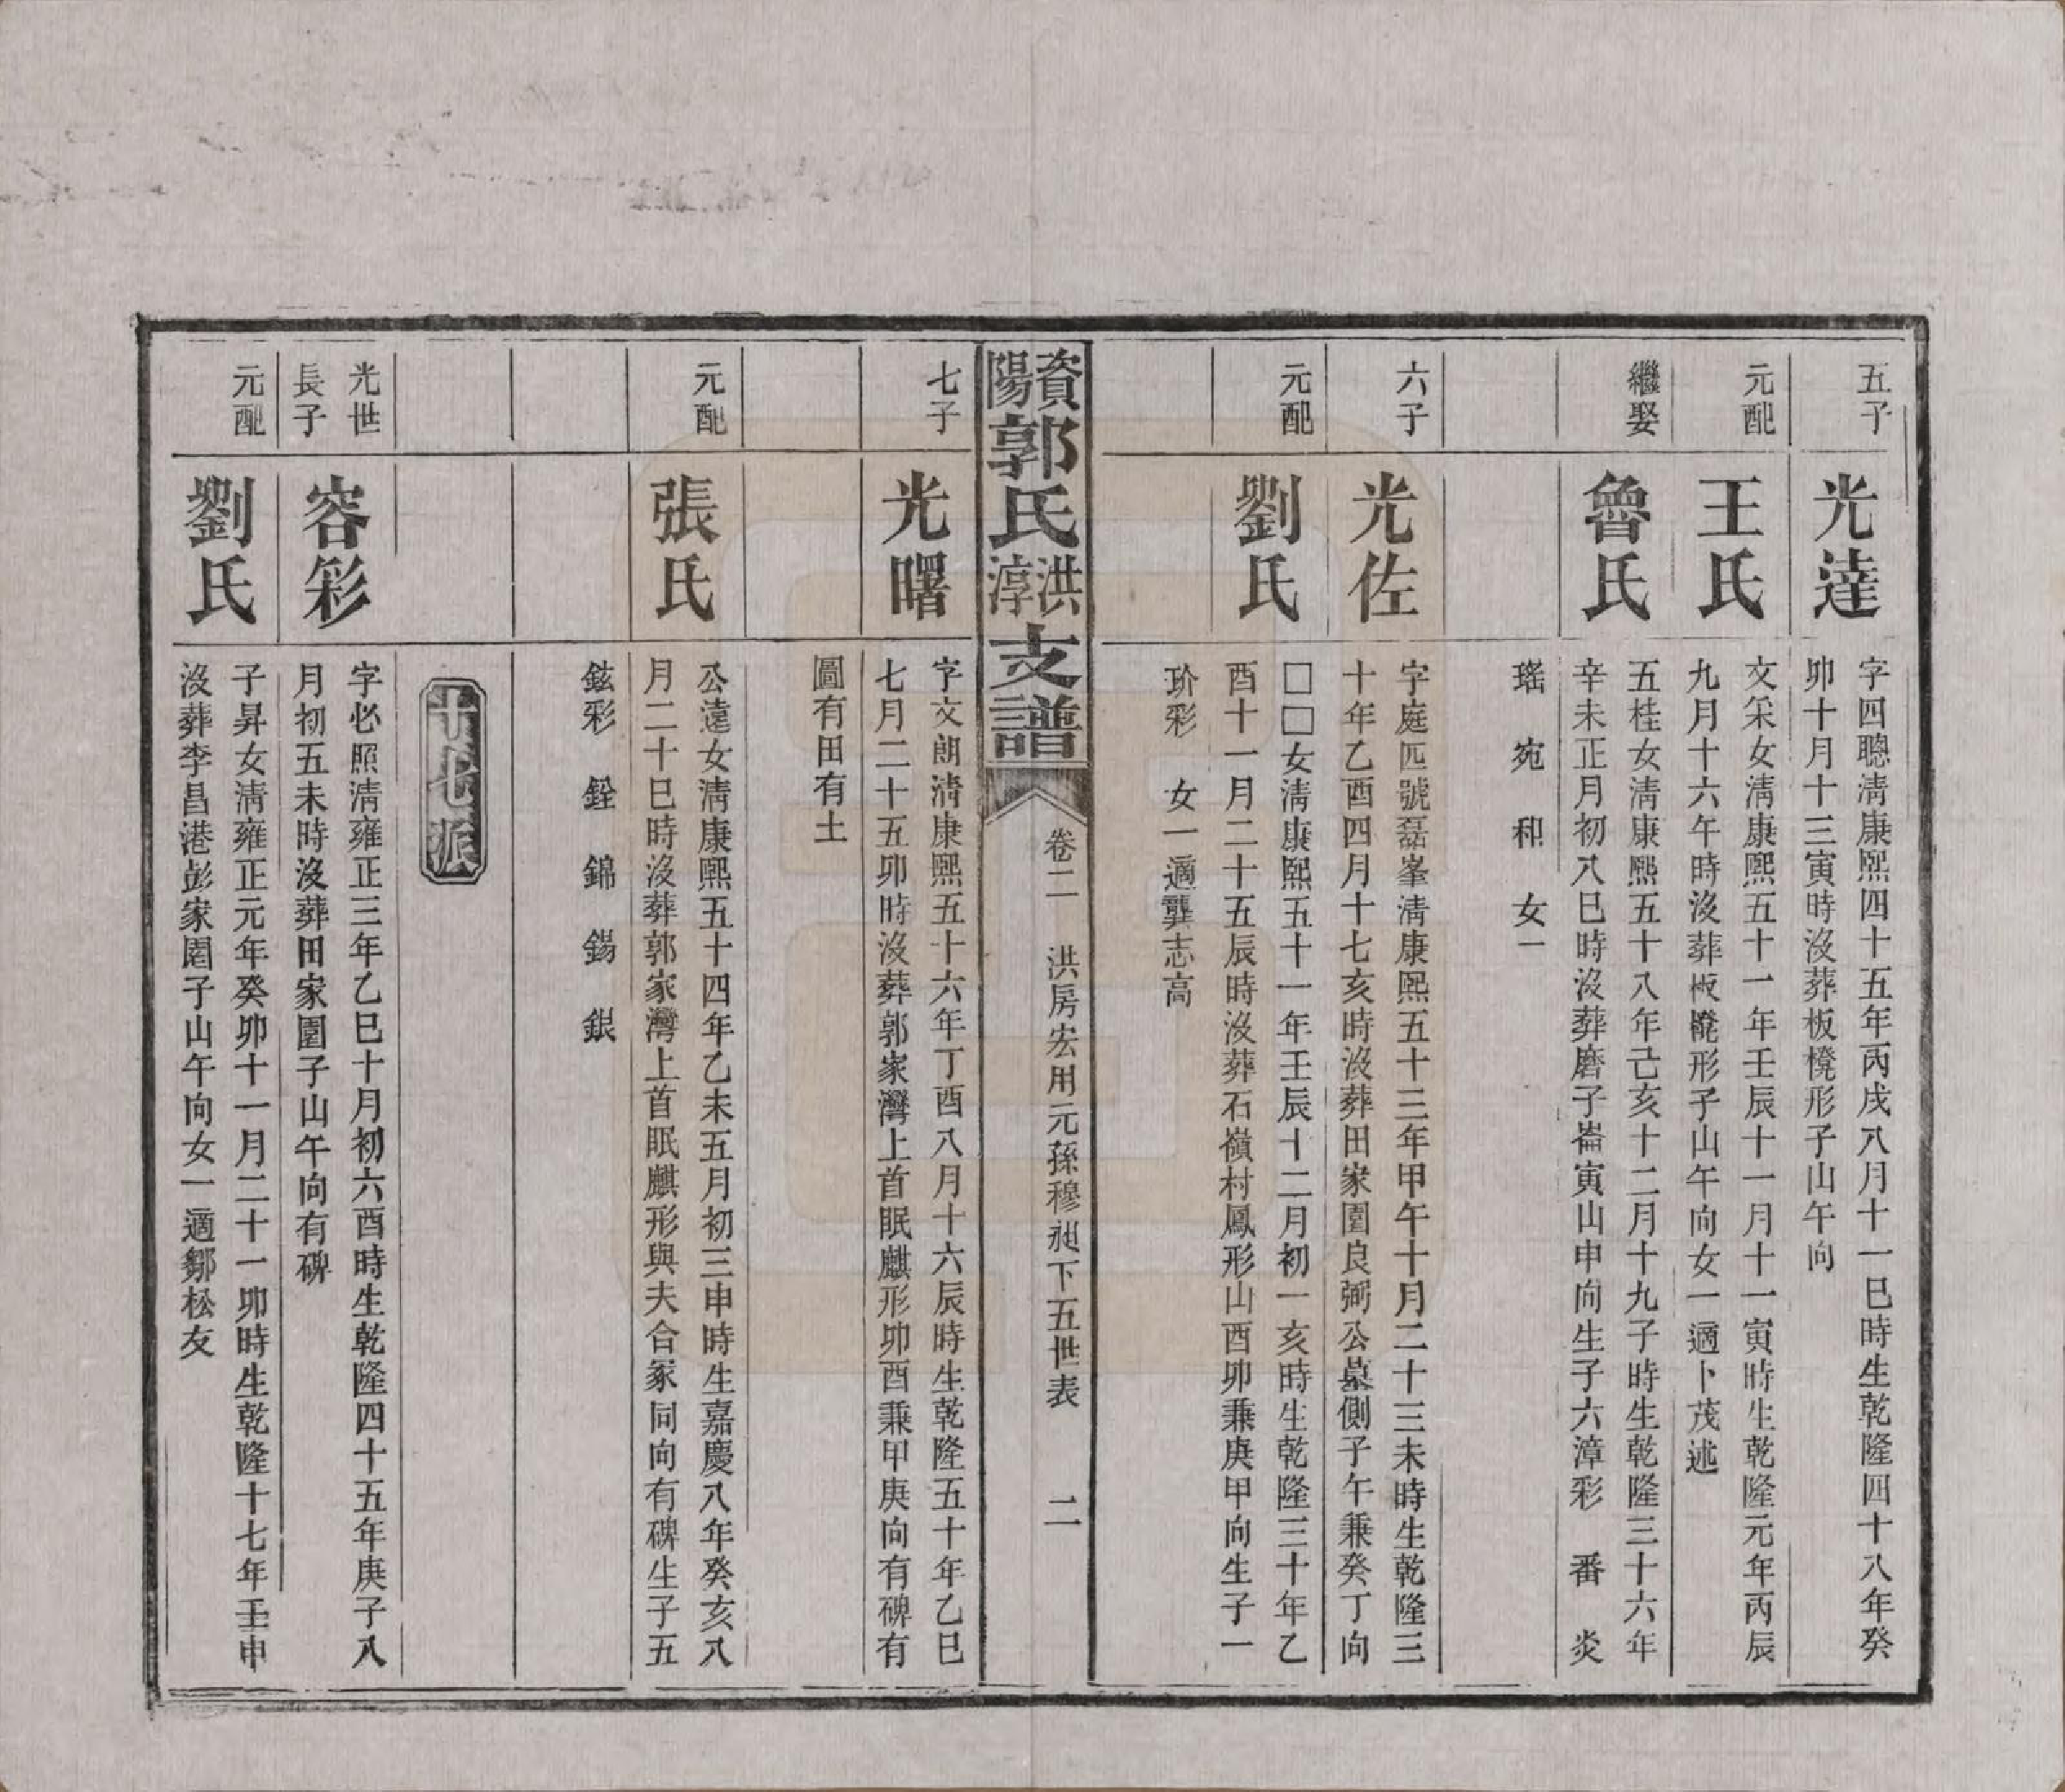 五子
光達
字四聰淸康熙四十五年丙戌八月十一巳時生乾隆四十八年癸
卯十月十三寅時沒葬板櫈形子山午向
元配
王氏
文采女淸康熙五十一年壬辰十一月十一寅時生乾隆元年丙辰
九月十六午時沒葬板櫈形子山午向女一適卜茂述
繼娶
魯氏
五桂女淸康熙五十八年己亥十二月十九子時生乾隆三十六年
辛未正月初八巳時沒葬磨子崙寅山申向生子六漳彩 番 炎
瑤 宛 和 女一
六子
光佐
字庭匹號磊峯淸康熙五十三年甲午十月二十三未時生乾隆三
十年乙酉四月十七亥時沒葬田家園良弼公墓側子午兼癸丁向
元配
劉氏
□□女淸康熙五十一年壬辰十二月初一亥時生乾隆三十年乙
酉十一月二十五辰時沒葬石嶺村鳳形山酉卯兼庚甲向生子一
玠彩 女一適龔志高
資陽郭氏洪淳支譜
卷二 洪房宏用元孫穆昶下五世表 二
七子
光曙
字文朗淸康熙五十六年丁酉八月十六辰時生乾隆五十年乙巳
七月二十五卯時沒葬郭家灣上首眠麒形卯酉兼甲庚向有碑有
圖有田有土
元配
張氏
公遠女淸康熙五十四年乙未五月初三申時生嘉慶八年癸亥八
月二十巳時沒葬郭家灣上首眠麒形與夫合冢同向有碑生子五
鉉彩 銓 錦 錫 銀
十七派
光世
長子
容彩
字必照淸雍正三年乙巳十月初六酉時生乾隆四十五年庚子八
月初五未時沒葬田家園子山午向有碑
元配
劉氏
子昇女淸雍正元年癸卯十一月二十一卯時生乾隆十七年壬申
沒葬李昌港彭家園子山午向女一適鄒松友